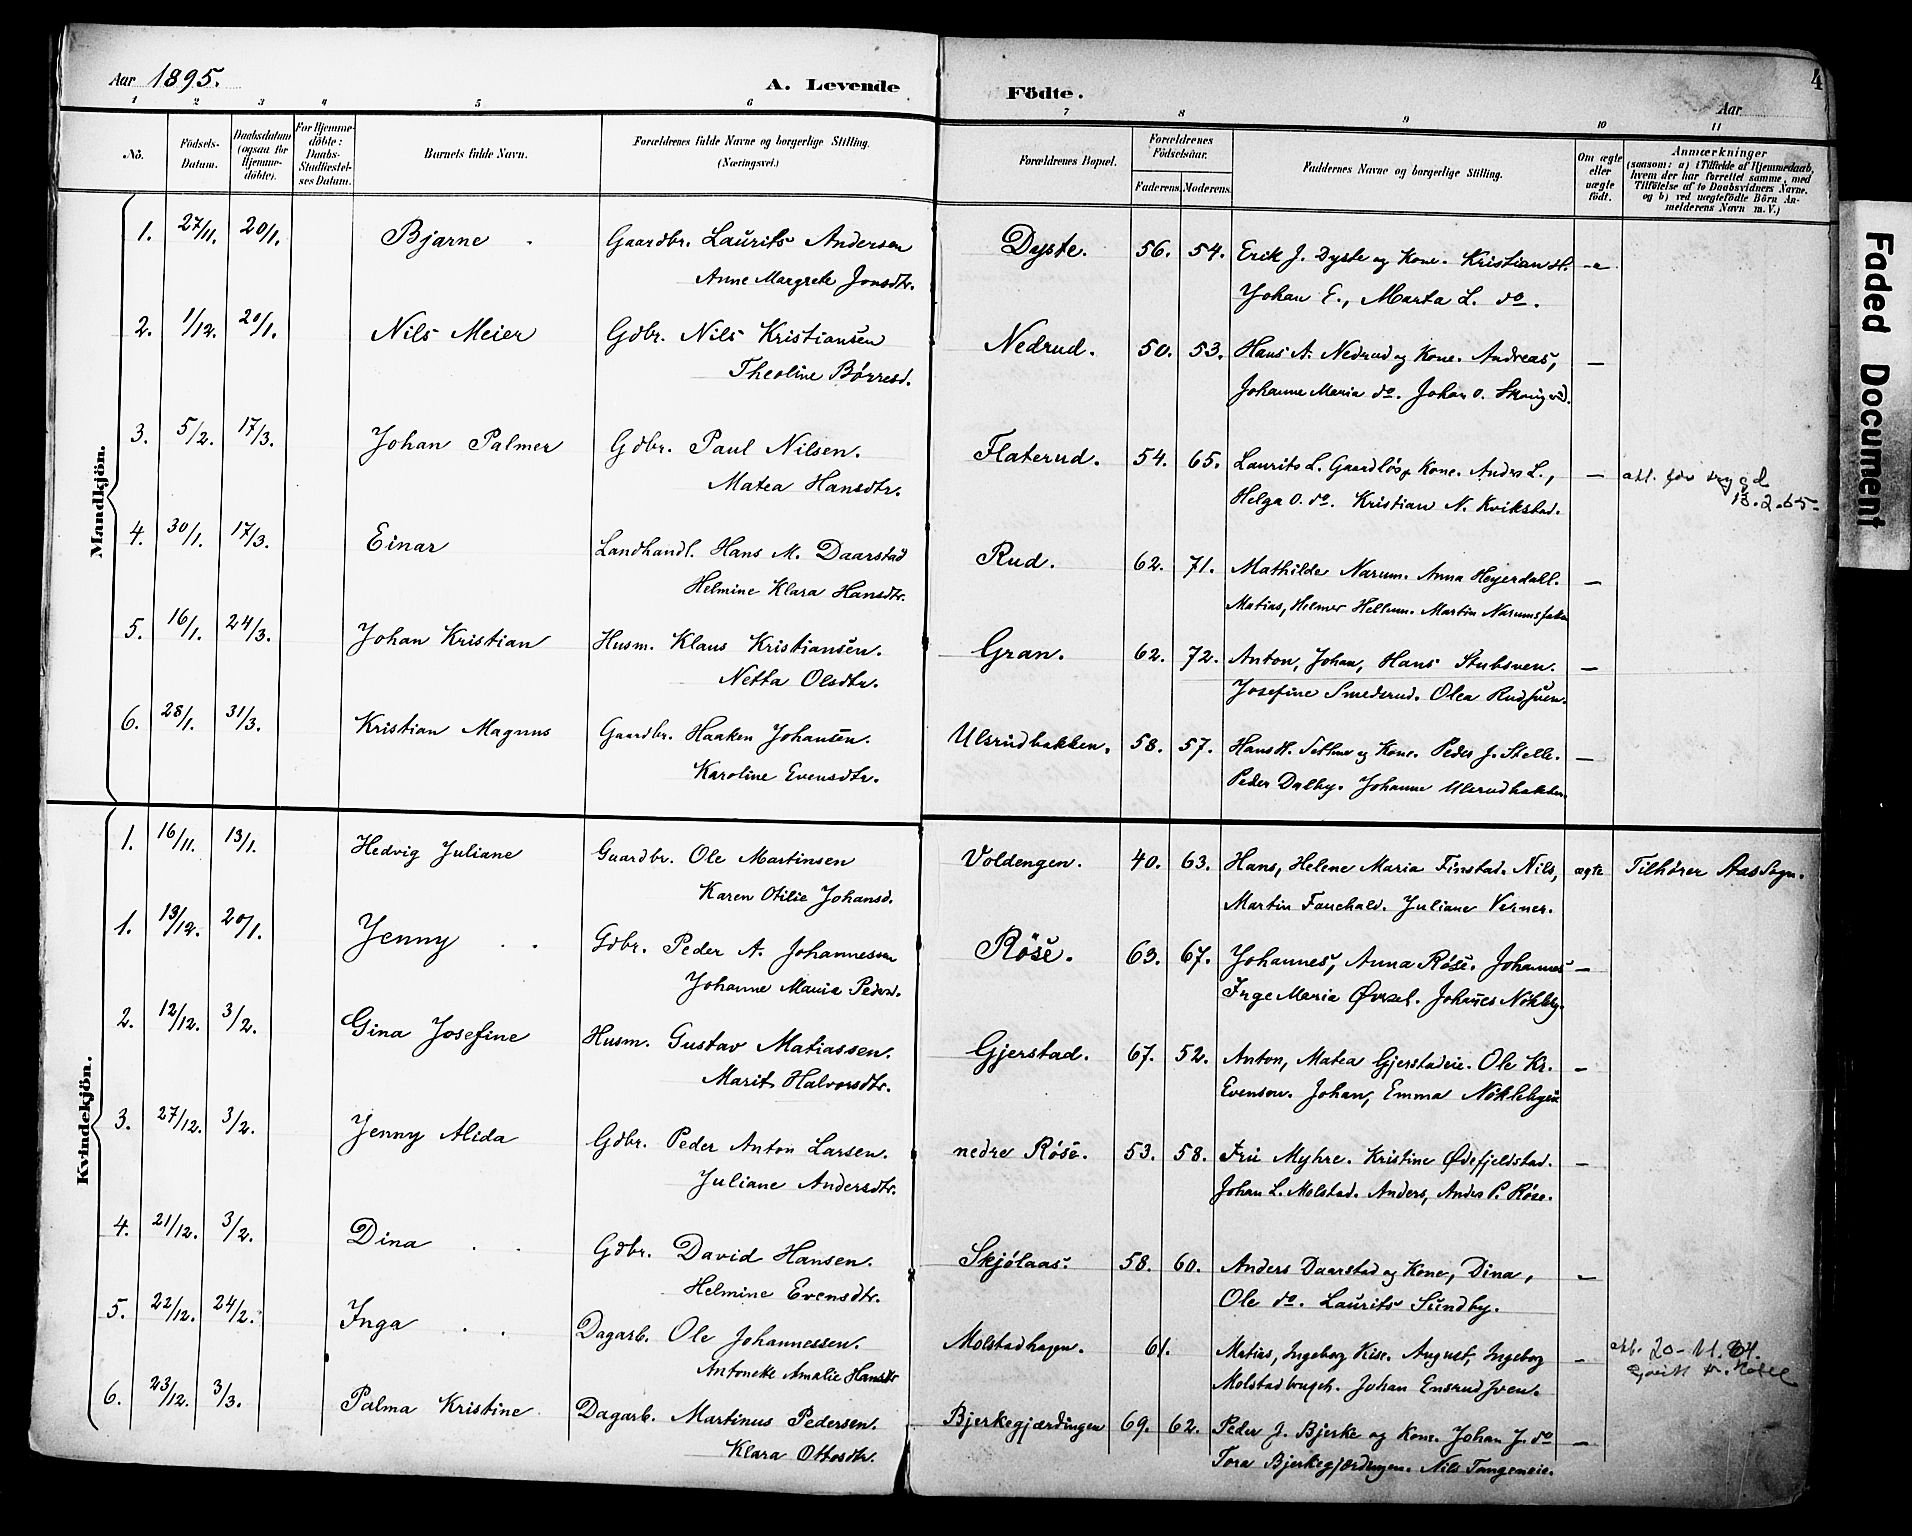 Aar 1895.
A. Levende
Födte.
Aar
4
1 2 3 4 5 6 7 8 9 10 11
No.
Födsels-Datum.
Daabsdatum (ogsaa for Hjemme-döbte).
For Hjemme-döbte: Daabs-Stadfæstel-ses Datum.
Barnets fulde Navn.
Forældrenes fulde Navne og borgerlige Stilling.
(Næringsvei.)
Forældrenes Bopæl.
Forældrenes Födselsaar.
Faderens. Moderens.
Faddernes Navne og borgerlige Stilling.
Om ægte eller uægte födt.
Anmærkninger
(saasom: a) i Tilfælde af Hjemmedaab,
hvem der har forrettet samme, med
Tilföielse af to Daabsvidners Navne,
og b) ved uægtefödte Börn An-
melderens Navn m. V.)
Mandkjön.
1. 27/11. 20/1. Bjarne Gaardbr. Laurits Andersen Dyste. 56. 54. Erik J. Dyste og Kone. Kristian
Anne Margrete Jonsdtr. Johan E., Marta L. do.
2. 1/12. 20/1. Nils Meier Gdbr. Nils Kristiansen Nedrud. 50. 53. Hans A. Nedrud og Kone. Andreas, —
Theoline Børresd. Johanne Maria do. Johan O.
3. 5/2. 17/3. Johan Palmer Gdbr. Paul Nilsen. Flaterud. 54. 65. Laurits L. Gaardløs, Kone. Anders L., — att. for
Matea Hansdtr. Helga O. do. Kristian N. Kvikstad. 13.2.65.
4. 30/1. 17/3. Einar Landhandl. Hans M. Daarstad Rud. 62. 71. Mathilde Narum. Anna Heyerdahl. —
Helmine Klara Hansdtr. Matias, Helmer Hellum. Martin
5. 16/1. 24/3. Johan Kristian Husm. Klaus Kristiansen. Gran. 62. 72. Anton, Johan, Hans Stubsven. —
Netta Olsdtr. Josefine Smedsrud. Olea
6. 28/1. 31/3. Kristian Magnus Gaardbr. Haaken Johansen. Ulsrudbakken. 58. 57. Hans H. og Kone. Peder J. Stelle. —
Karoline Evensdtr. Peder Dalby. Johanne Ulsrudbakken.
Kvindekjön.
1. 16/11. 13/1. Hedvig Juliane Gaardbr. Ole Martinsen Voldengen. 40. 63. Hans, Helene Maria Finstad. Nils, ægte Tilhører Aas Sogn.
Karen Otilie Johansd. Martin Fauchald. Juliane Verner.
1. 13/12. 20/1. Jenny Gdbr. Peder A. Johannessen Røse. 63. 67. Johannes, Anna Røse. Johannes —
Johanne Maria Pedersd. Inge Maria Johannes Nøkleby.
2. 12/12. 3/2. Gina Josefine Husm. Gustav Matiassen. Gjerstad. 67. 52. Anton, Matea Gjerstadeie. Ole Kr. —
Marit Halvorsdtr. Evenson. Johan, Emma
3. 27/12. 3/2. Jenny Alida Gdbr. Peder Anton Larsen. nedre Røse. 53. 58. Fru Myhre. Kristine Ødefjeldstad. —
Juliane Andersdtr. Johan L. Molstad. Anders, Anders P. Røse.
4. 21/12. 3/2. Dina Gdbr. David Hansen. Skjølaas. 58. 60. Anders Daarstad og Kone, Dina, —
Helmine Evensdtr. Ole do. Laurits Sundby.
5. 22/12. 24/2. Inga Dagarb. Ole Johannessen. Molstadhagen. 61. Matias, Ingeborg Kise. August, Ingeborg — att. 20-11.64.
Antonette Amalie Hansdtr Johan
6. 23/12. 3/3. Palma Kristine Dagarb. Martinus Pedersen. Bjerkegjærdingen 69. 62. Peder J. Bjerke og Kone. Johan J. do —
Klara Ottosdtr. Tora Bjerkegjærdingen. Nils Tangeneie.
Faded Document